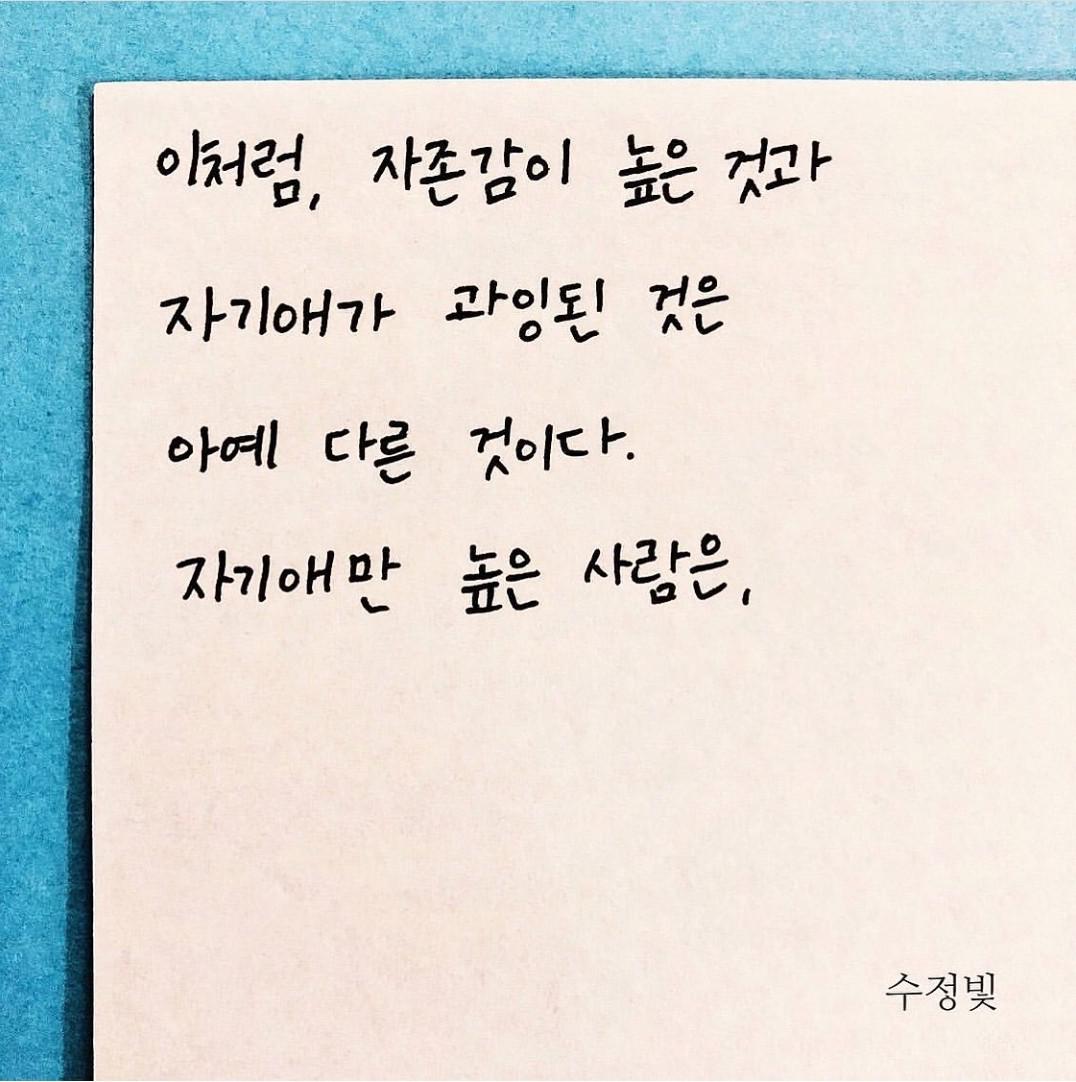 이처럼, 자존감이 높은 것과
자기애가 과잉된 것은
아예 다른 것이다.
자기애만 높은 사람은,
수정빛